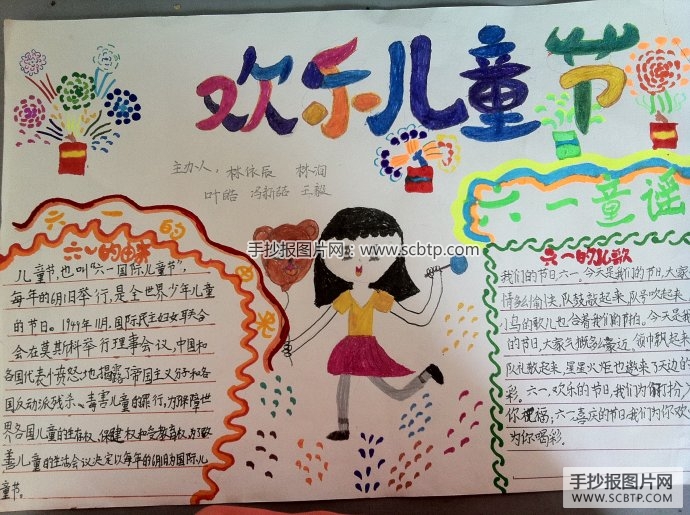 欢乐儿童节
主办人：林依辰 林润
叶皓 冯新 王毅
六一的
六一的由来
儿童节，也叫“六一国际儿童节”，
每年的6月1日举行，是全世界少年儿童
的节日。1949年11月，国际民主妇女联合
会在莫斯科举行理事会议，中国和
各国代表愤怒地揭露了帝国主义分子和各
国反动派残杀、毒害儿童的罪行，为保障世
界各国儿童的生存权、保健权和受教育权，为改
善儿童的生活会议决定以每年的6月1日为国际儿
童节。
手抄报图片网:www.scbtp.com
六一童谣
六一的儿歌
我们的节日六一。今天是我们的节日，大家
情绪愉快，队鼓敲起来，队号吹起来，
小鸟的歌儿也合着我们的节拍。今天是我
们的节日，大家气概多豪迈，领巾飘起来
队礼敬起来，星星火炬也映来了天边的
彩。六一，欢乐的节日，我们为你打扮，
你祝福；六一喜庆的节日，我们为你欢
为你喝彩。
手抄报图片网
WWW.SCBTP.COM